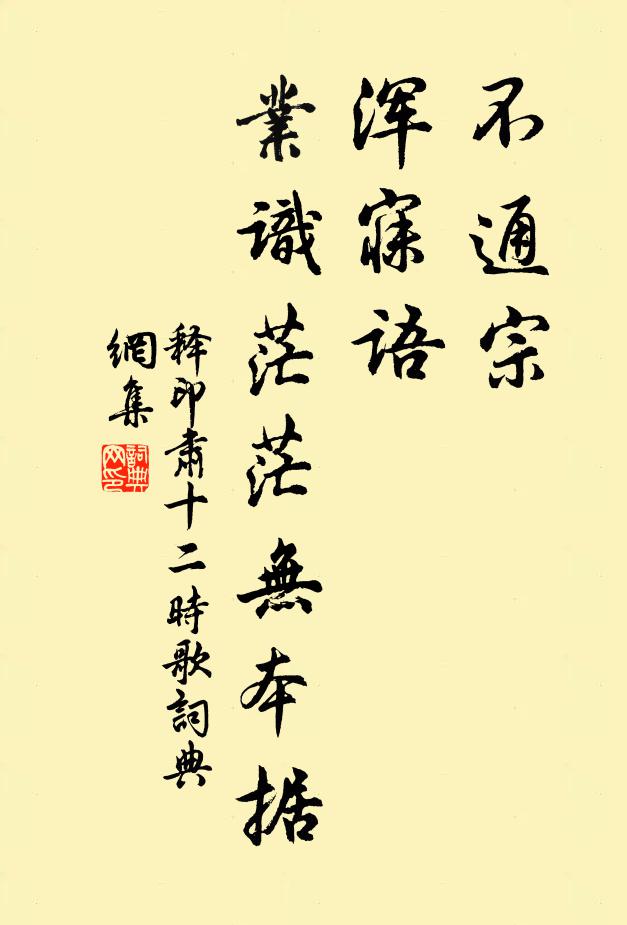 不通宗
浑寐语
業識茫茫無本据
释印肃十二時歌詞典
網集
詞典
网印